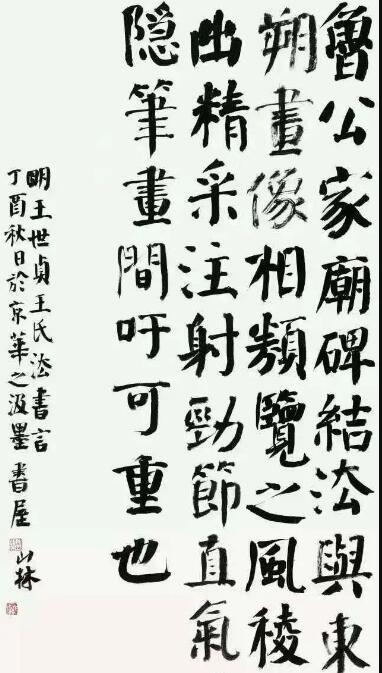 魯公家廟碑結法與東
朔畫像相類覽之風稜
出精采注射勁節直氣
隱隱筆畫間吁可重也
明王世貞王氏法書言
丁酉秋日於京華之汲墨書屋 山林